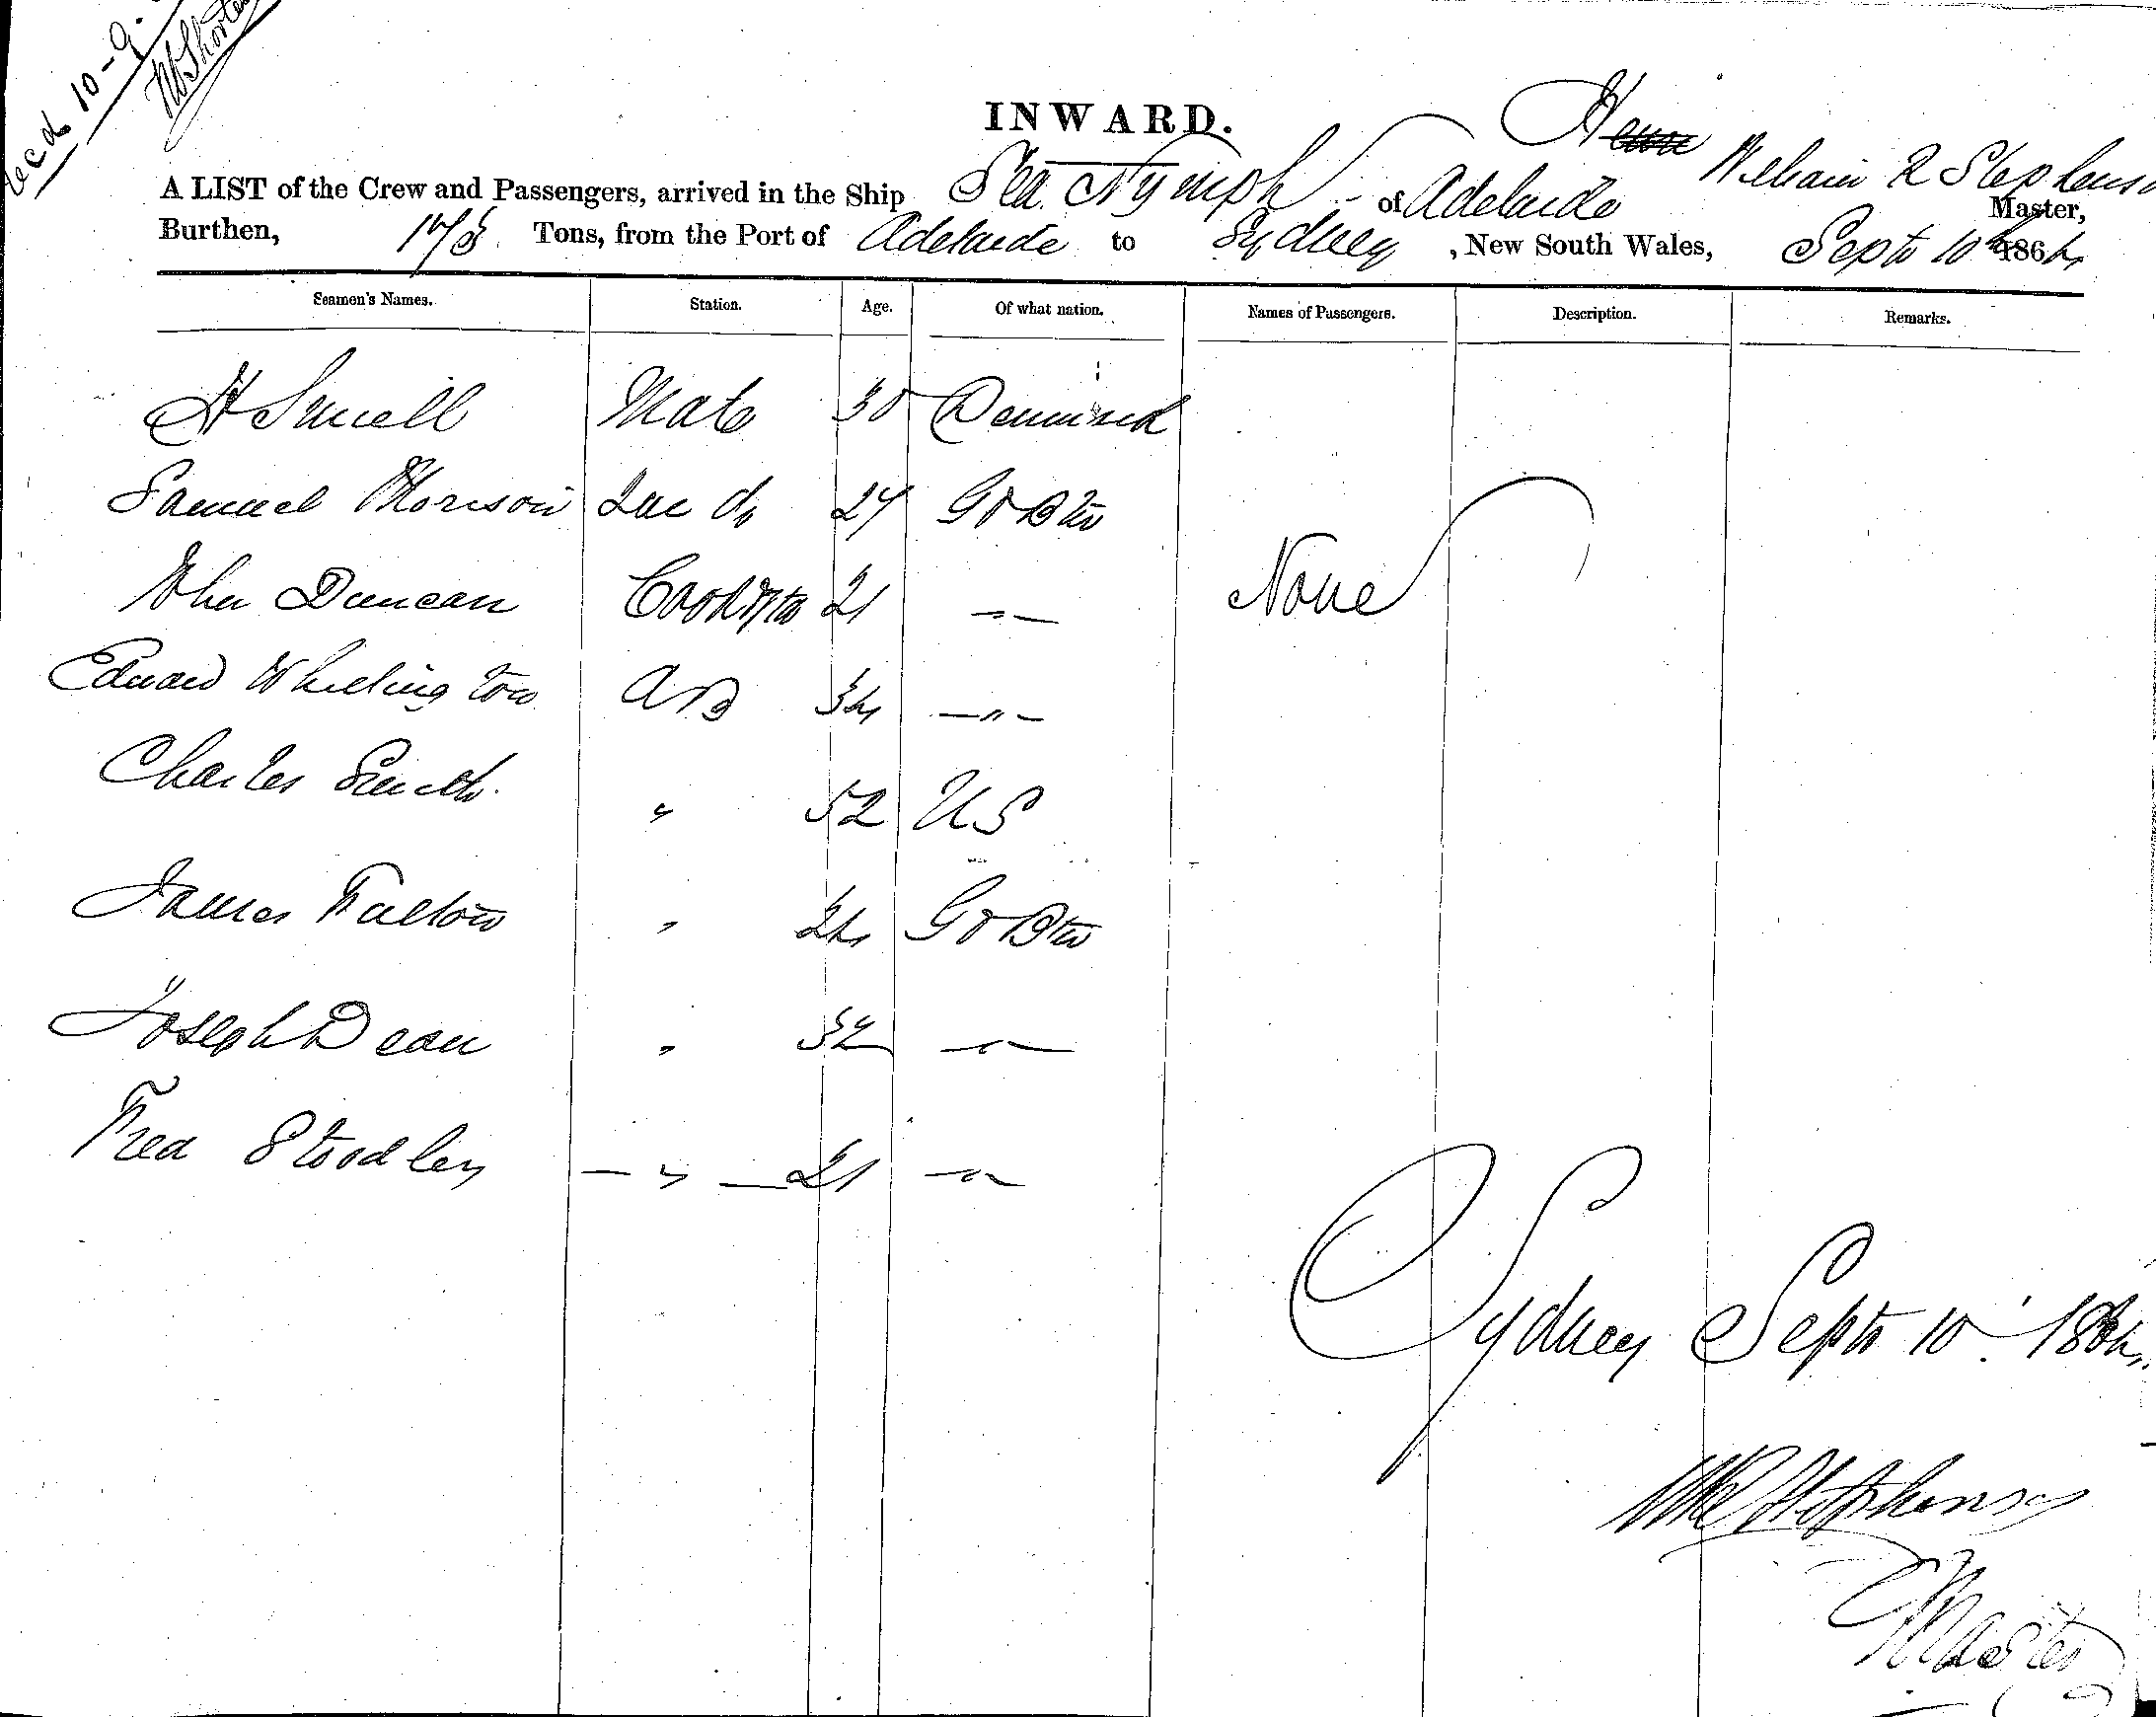 10-9-
INWARD.
A LIST of the Crew and Passengers, arrived in the Ship Sea Nymph of Adelaide William R Stephens
Master,
Burthen, 175 Tons, from the Port of Adelaide to Sydney, New South Wales, Septr 10th 1864
Seamen's Names. Station. Age. Of what nation. Names of Passengers. Description. Remarks.
H Mate 30 Denmark
Samuel Morison 2nd do 24 Gt Btn
John Duncan Cook 21 — " —
None
Edward Whellington AB 34 — " —
Charles Smith " 52 US
James Fallow " 24 Gt Btn
Joseph Dean " 32 — " —
Fred Stoodley — " — 21 — " —
Sydney Septr 10th 1864
WR Stephenson
Master